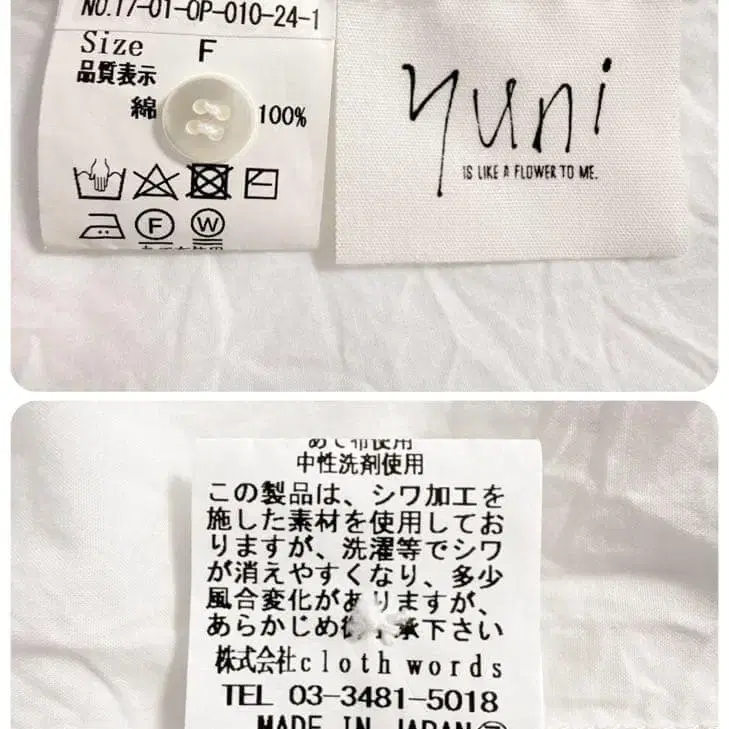 NO.17-01-OP-010-24-1
Size F
品質表示
綿 100%
F W
yuni
IS LIKE A FLOWER TO ME.
あて布使用
中性洗剤使用
この製品は、シワ加工を
施した素材を使用してお
りますが、洗濯等でシワ
が消えやすくなり、多少
風合変化がありますが、
あらかじめ御了承下さい
株式会社cloth words
TEL 03-3481-5018
MADE IN JAPAN